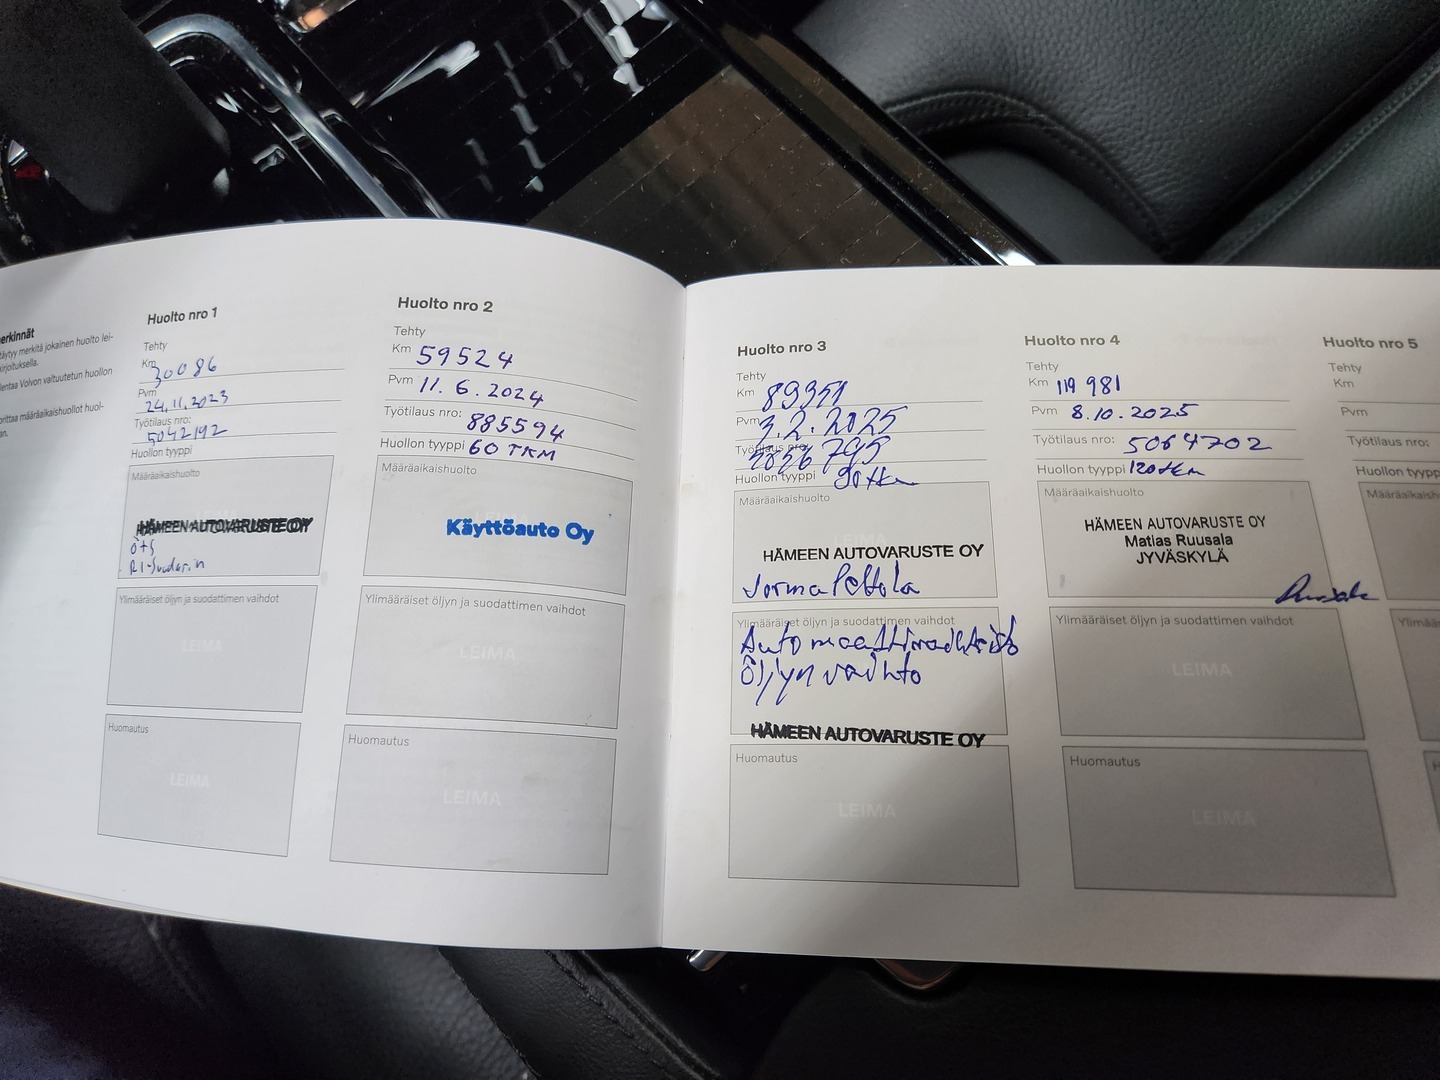 erkinnät
täytyy merkitä jokainen huolto lei-
kirjoituksella.
lentaa Volvon valtuutetun huollon
orittaa määräaikaishuollot huol-
an.
Huolto nro 1
Tehty
Km 30086
Pvm 24.11.2023
Työtilaus nro: 5042192
Huollon tyyppi
Määräaikaishuolto
HÄMEEN AUTOVARUSTE OY
Ö+S
Ylimääräiset öljyn ja suodattimen vaihdot
LEIMA
Huomautus
LEIMA
Huolto nro 2
Tehty
Km 59524
Pvm 11.6.2024
Työtilaus nro: 885594
Huollon tyyppi 60 TKM
Määräaikaishuolto
Käyttöauto Oy
Ylimääräiset öljyn ja suodattimen vaihdot
LEIMA
Huomautus
LEIMA
Huolto nro 3
Tehty
Km 89351
Pvm 3.2.2025
Työtilaus nro:
Huollon tyyppi 90tkm
Määräaikaishuolto
HÄMEEN AUTOVARUSTE OY
Jorma
Ylimääräiset öljyn ja suodattimen vaihdot
Automaattivaihteisto
Öljyn vaihto
HÄMEEN AUTOVARUSTE OY
Huomautus
LEIMA
Huolto nro 4
Tehty
Km 119 981
Pvm 8.10.2025
Työtilaus nro: 5064702
Huollon tyyppi 120tkm
Määräaikaishuolto
HÄMEEN AUTOVARUSTE OY
Matias Ruusala
JYVÄSKYLÄ
Ylimääräiset öljyn ja suodattimen vaihdot
LEIMA
Huomautus
LEIMA
Huolto nro 5
Tehty
Km
Pvm
Työtilaus nro:
Huollon tyypp
Määräaikaish
Ylimää